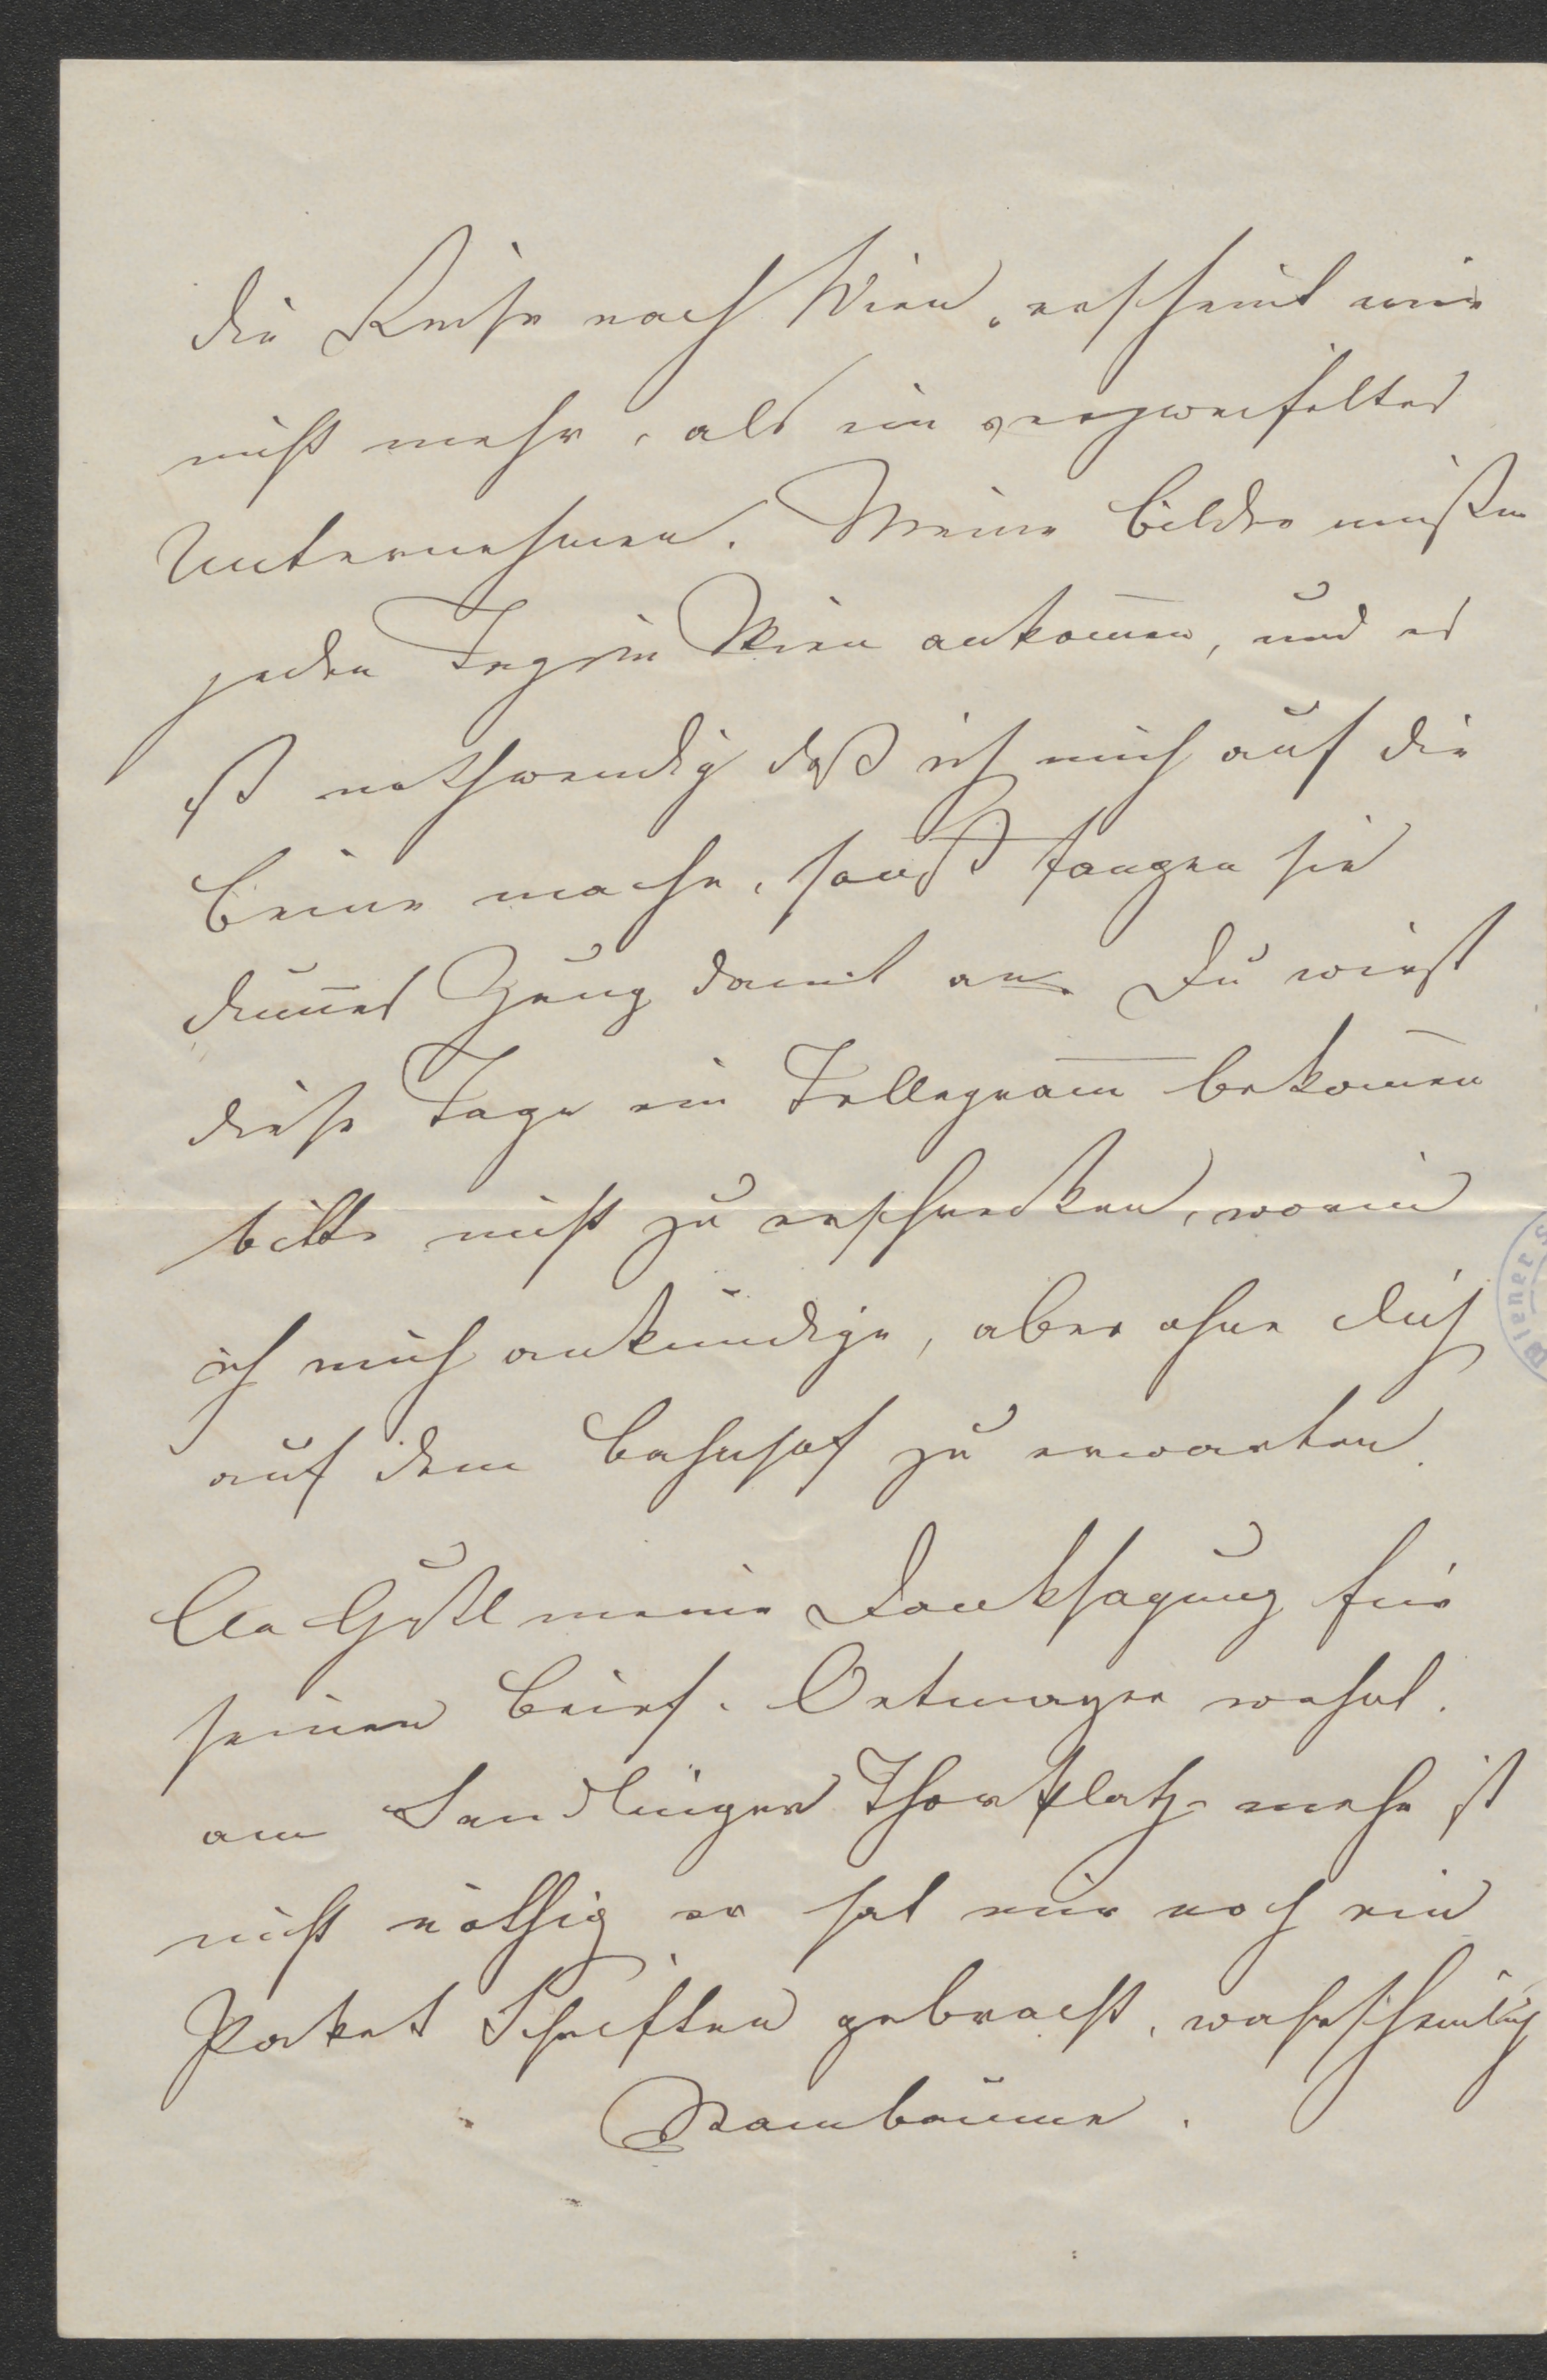 die Reise nach Wien, erscheint mir
nicht mehr, als ein verzweifeltes
Unternehmen. Meine Bilder müßen
jeden Tag in Wien ankom̄en, und es
ist nothwendig daß ich mich auf die
Beine mache, sonst fangen sie
dum̄es Zeug damit an. Du wirst
diese Tage ein Tellegram̄ bekom̄en
bitte nicht zu erschrecken, worin
ich mich ankündige, aber ohne dich
auf dem Bahnhof zu erwarten.
An Gustl meine Danksagung für
seinen Brief. Ortmayer wohnt.
am Sendlinger Thorplatz mehr ist
nicht nöthig er hat mir noch ein
Paket Schriften gebracht, wahrscheinlich
Stambäume.
Wiener S